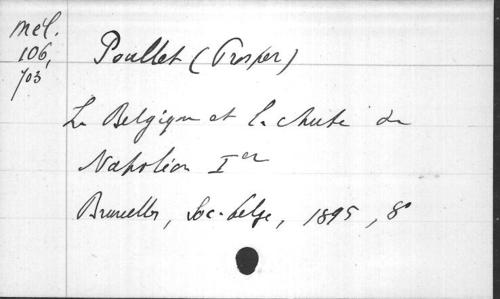 Mél.
106,
703
Poullet (Prosper)
La Belgique et la chute de
Napoléon Ier
Bruxelles, Soc. belge, 1895, 8°